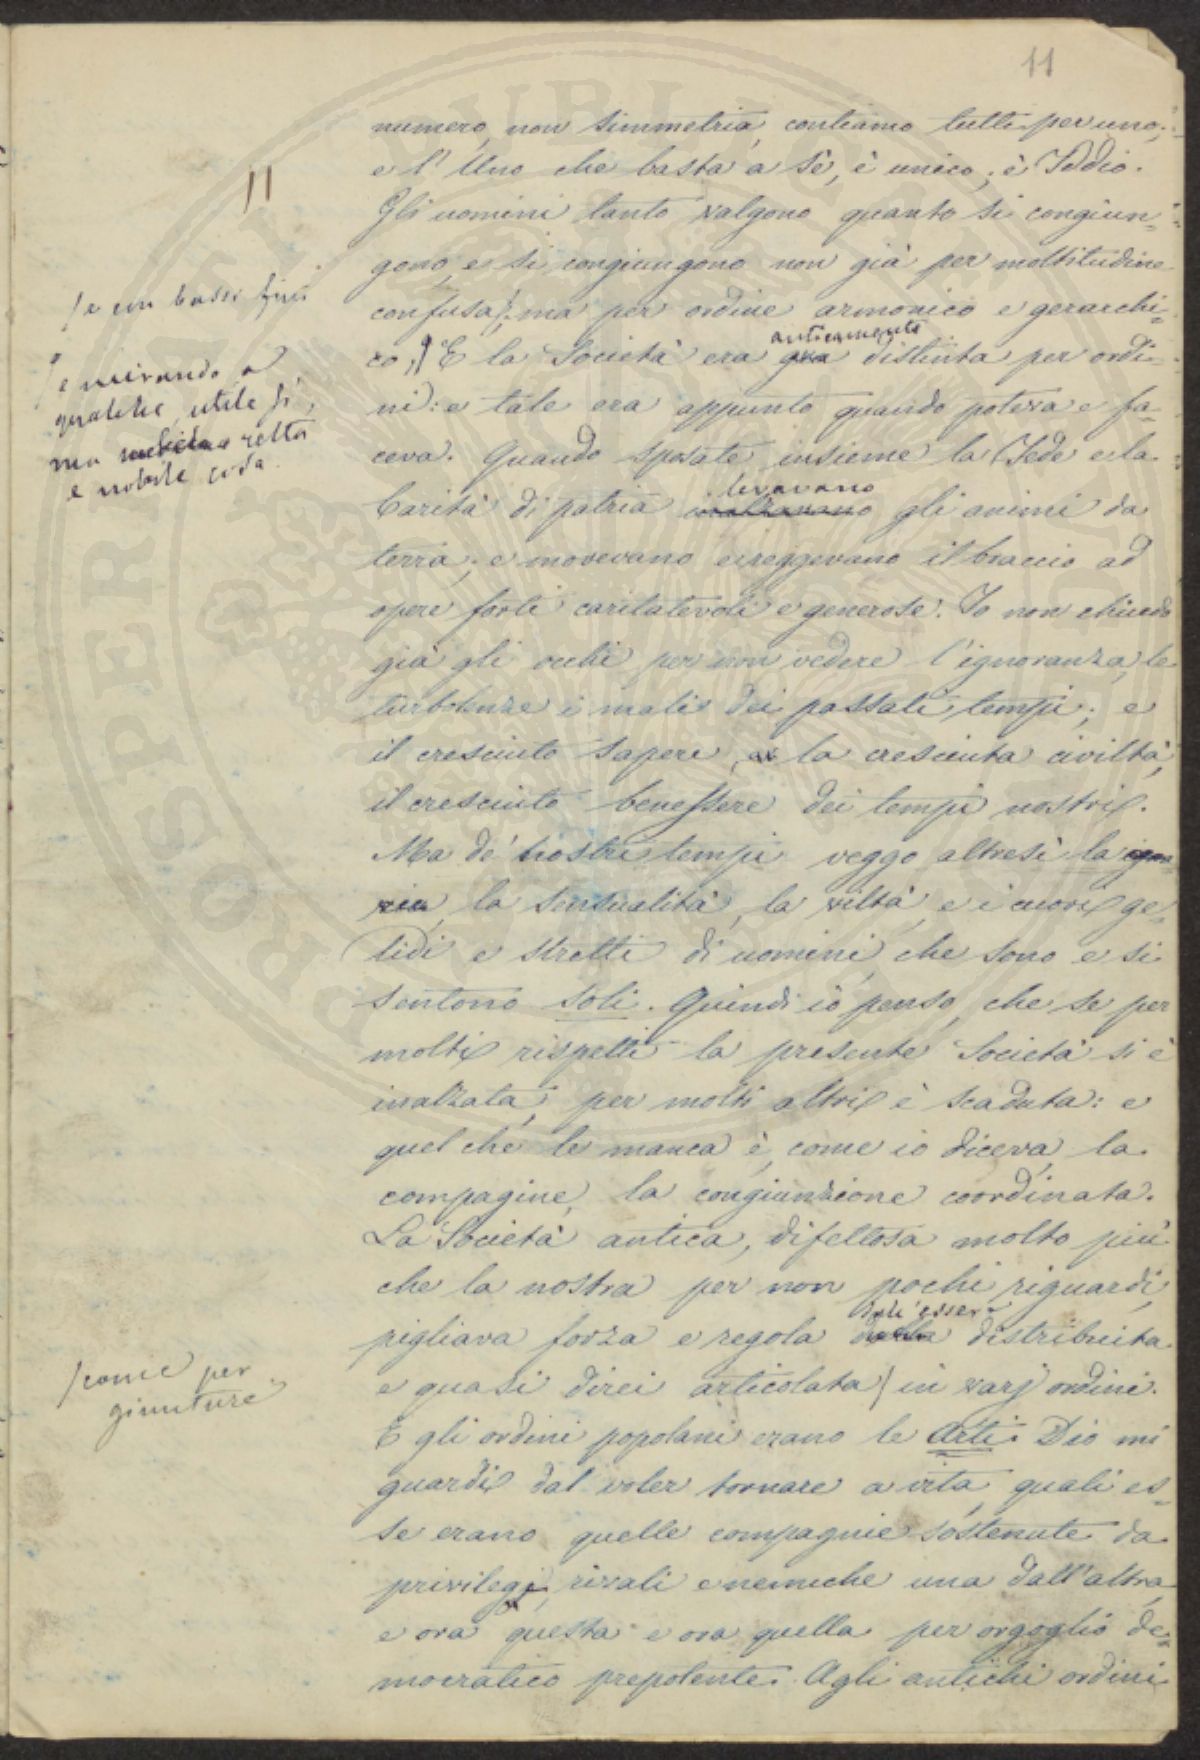 11
11
numero, non simmetria, contiamo tutti per uno;
e l'Uno che basta a sè, è unico, è Iddio.
Gli uomini tanto valgono quanto si congiun-
gono, e si congiungono non già per moltitudine
/e con bassi fini
confusa/; ma per ordine armonico e gerarchi-
co;/ E la Società era anticamente distinta per ordi-
/e mirando a
qualche utile sì,
ma retta
e nobile cosa.
ni: e tale era appunto quando poteva e fa-
ceva. Quando sposate insieme la Fede e la
Carità di patria innalzavano levavano gli animi da
terra, e movevano e reggevano il braccio ad
opere forti caritatevoli e generose. Io non chiudo
già gli occhi per non vedere l'ignoranza, le
turbolenze i mali dei passati tempi; e
il cresciuto sapere, la cresciuta civiltà,
il cresciuto benessere dei tempi nostri.
Ma de' nostri tempi veggo altresì la
la sensualità, la viltà, e i cuori ge-
lidi e stretti di uomini, che sono e si
sentono soli. Quindi io penso, che se per
molti rispetti la presente Società si è
inalzata, per molti altri è scaduta: e
quel che le manca è, come io diceva, la
compagine, la congiunzione coordinata.
La Società antica, difettosa molto più
che la nostra per non pochi riguardi,
pigliava forza e regola dall'essere distribuita
/come per
giunture
e quasi direi articolata/ in varj ordini.
E gli ordini popolani erano le Arti. Dio mi
guardi dal voler tornare a vita, quali es-
se erano, quelle compagnie sostenute da
privilegj, rivali e nemiche una dall'altra,
e ora questa e ora quella per orgoglio de-
mocratico prepotente. Agli antichi ordini